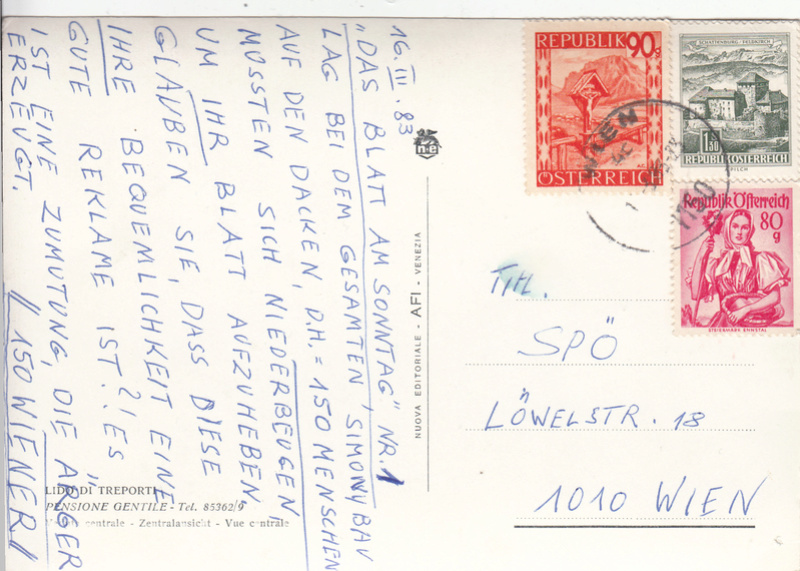 16.III.83
"DAS BLATT AM SONNTAG" NR. 1
LAG BEI DEM GESAMTEN, SIMONYBAU
AUF DEN DACKEN, D.H. = 150 MENSCHEN
MUSSTEN SICH NIEDERBEUGEN,
UM IHR BLATT AUFZUHEBEN,
GLAUBEN SIE, DASS DIESE
IHRE BEQUEMLICHKEIT EINE
GUTE REKLAME IST?! ES
IST EINE ZUMUTUNG, DIE ÄRGER
ERZEUGT. // 150 WIENER //
LIDO DI TREPORTI
PENSIONE GENTILE - Tel. 85362/9
centrale - Zentralansicht - Vue centrale
n·e
NUOVA EDITORIALE - AFI - VENEZIA
REPUBLIK 90g
ÖSTERREICH
SCHATTENBURG, FELDKIRCH
1.50
REPUBLIK ÖSTERREICH
PILCH
Republik Österreich
80
g
STEIERMARK ENNSTAL
WIEN
1150
Titl.
SPÖ
LÖWELSTR. 18
1010 WIEN